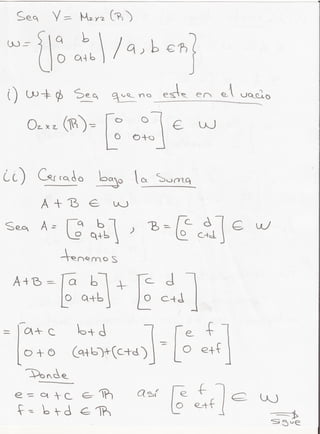 Sea V = M₂ₓ₂ (ℝ)
W = { | a b / 0 a+b | / a, b ∈ ℝ }
i) W ≠ ∅ Sea que no este en el vacio
O₂ₓ₂ (ℝ) = [ 0 0 / 0 0+0 ] ∈ W
ii) Cerrado bajo la Suma
A + B ∈ W
Sea A = [ a b / 0 a+b ] , B = [ c d / 0 c+d ] ∈ W
tenemos
A+B = [ a b / 0 a+b ] + [ c d / 0 c+d ]
= [ a+c b+d / 0+0 (a+b)+(c+d) ] = [ e f / 0 e+f ]
Donde
e = a + c ∈ ℝ así [ e f / 0 e+f ] ∈ W
f = b + d ∈ ℝ
⇒
Sigue